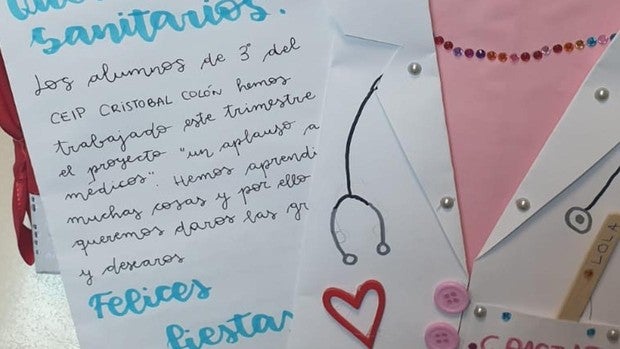 sanitarios!
Los alumnos de 3º del
CEIP CRISTOBAL COLÓN hemos
trabajado este trimestre
el proyecto "un aplauso a
médicos". Hemos aprendi
muchas cosas y por ello
queremos daros las gr
y desearos
Felices
fiestas
LOLA